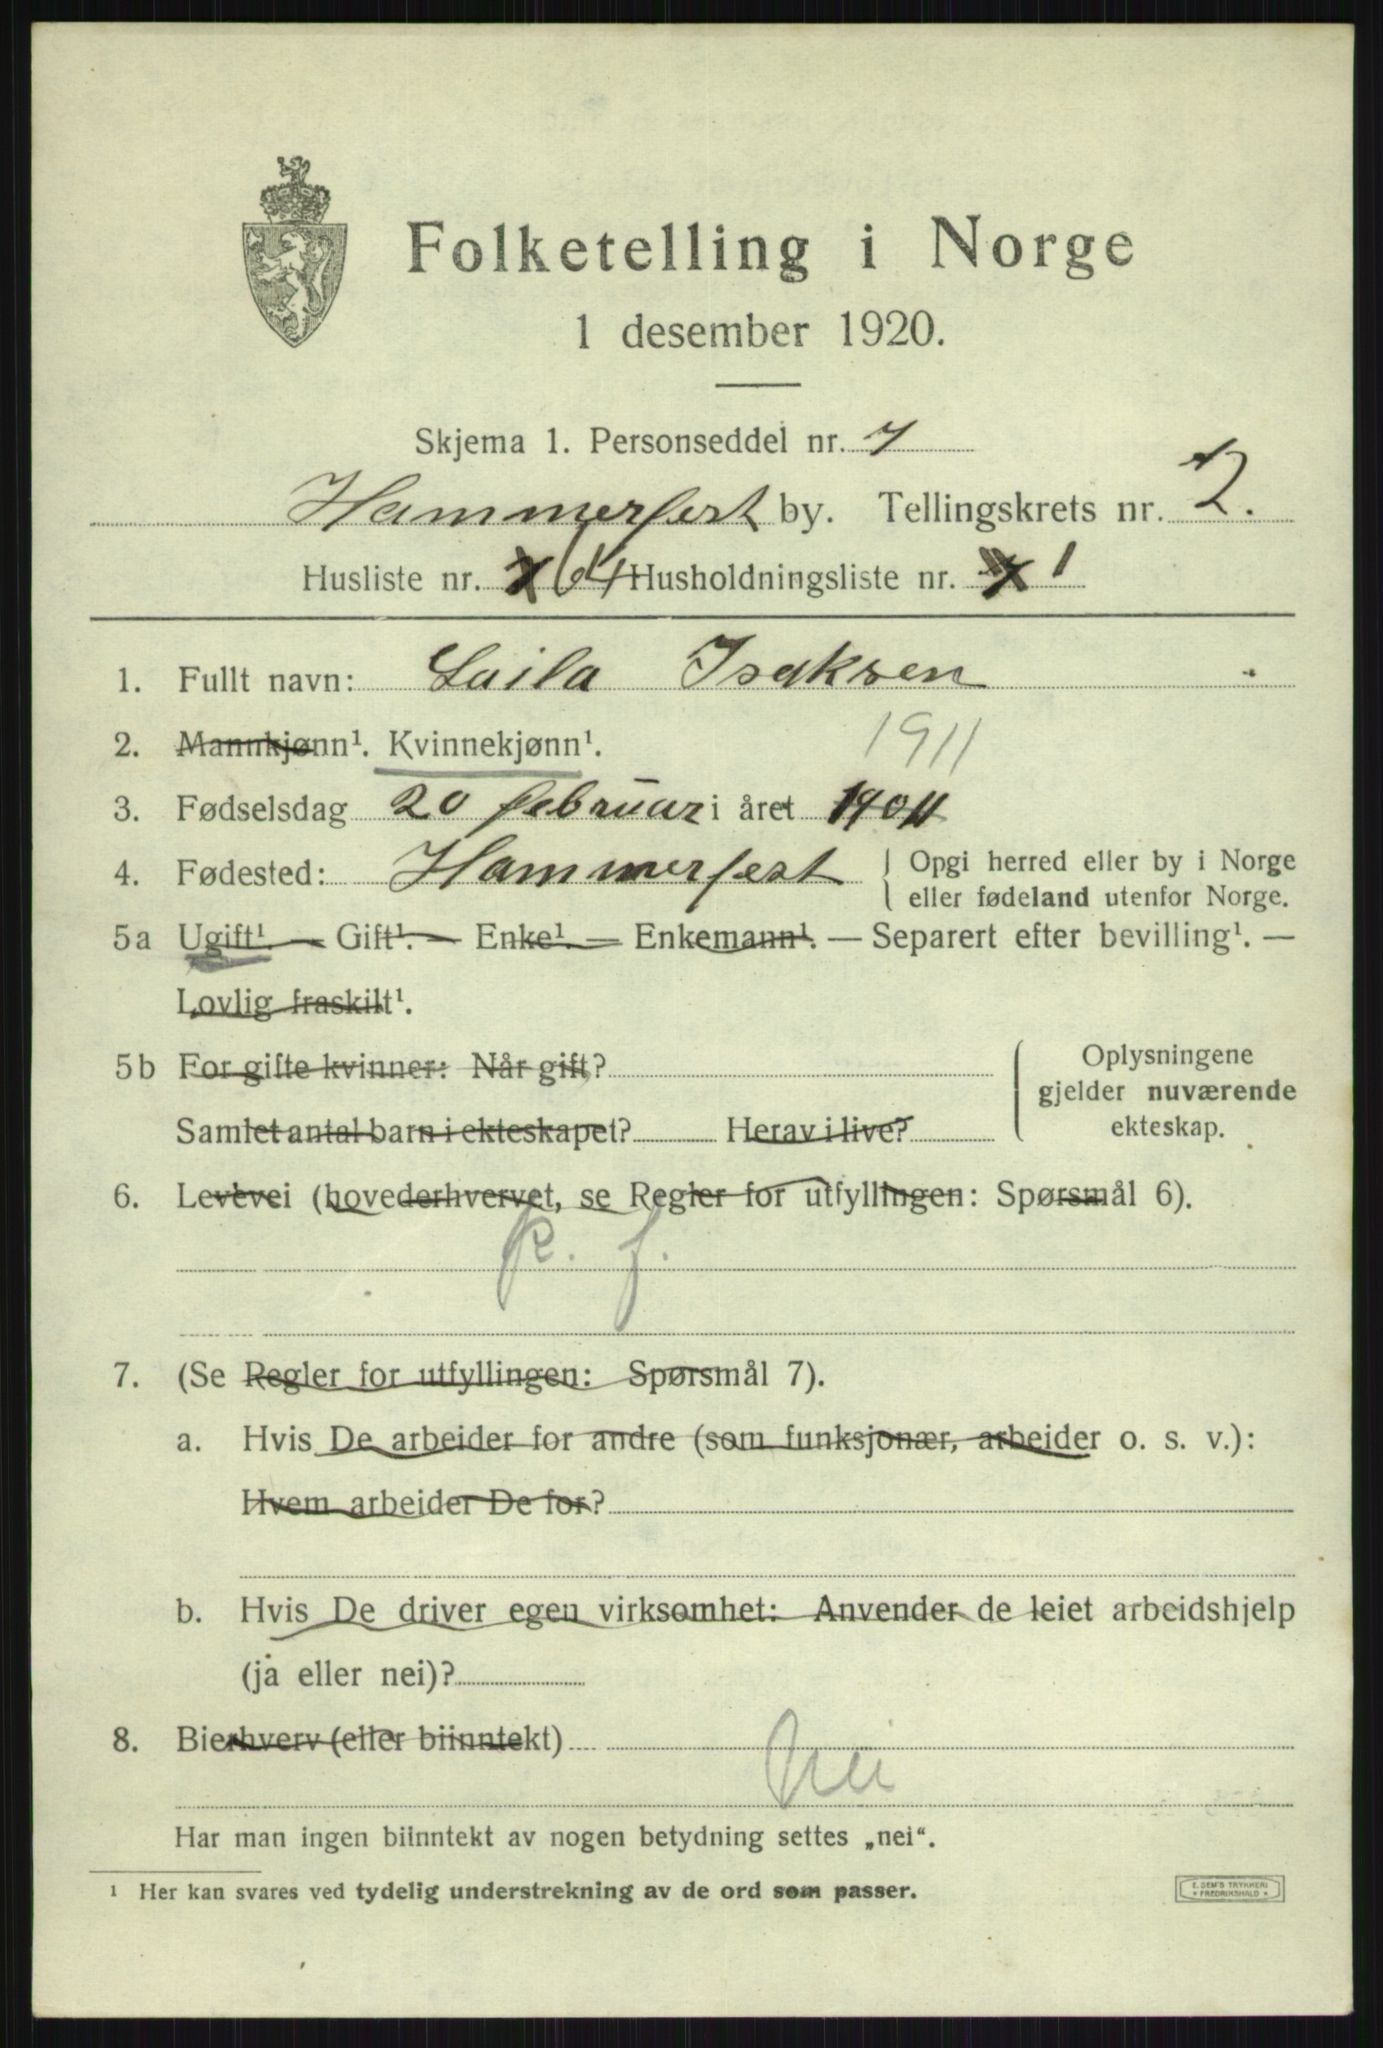 Folketelling i Norge
1 desember 1920.
Skjema 1. Personseddel nr. 7
Hammerfest by. Tellingskrets nr. 2.
Husliste nr. 64 Husholdningsliste nr. 1
1. Fullt navn: Laila Isaksen
2. Mannkjønn¹. Kvinnekjønn¹.
1911
3. Fødselsdag 20 februar i året 1911
4. Fødested: Hammerfest { Opgi herred eller by i Norge
eller fødeland utenfor Norge.
5a Ugift¹. — Gift¹. — Enke¹. — Enkemann¹. — Separert efter bevilling¹. —
Lovlig fraskilt¹.
5b For gifte kvinner: Når gift?
Samlet antal barn i ekteskapet? Herav i live?
Oplysningene
gjelder nuværende
ekteskap.
6. Levevei (hovederhvervet, se Regler for utfyllingen: Spørsmål 6).
p. f.
7. (Se Regler for utfyllingen: Spørsmål 7).
a. Hvis De arbeider for andre (som funksjonær, arbeider o. s. v.):
Hvem arbeider De for?
b. Hvis De driver egen virksomhet: Anvender de leiet arbeidshjelp
(ja eller nei)?
8. Bierhverv (eller biinntekt)
Nei
Har man ingen biinntekt av nogen betydning settes „nei“.
¹ Her kan svares ved tydelig understrekning av de ord som passer.
E. SEM'S TRYKKERI
* FREDRIKSHALD *